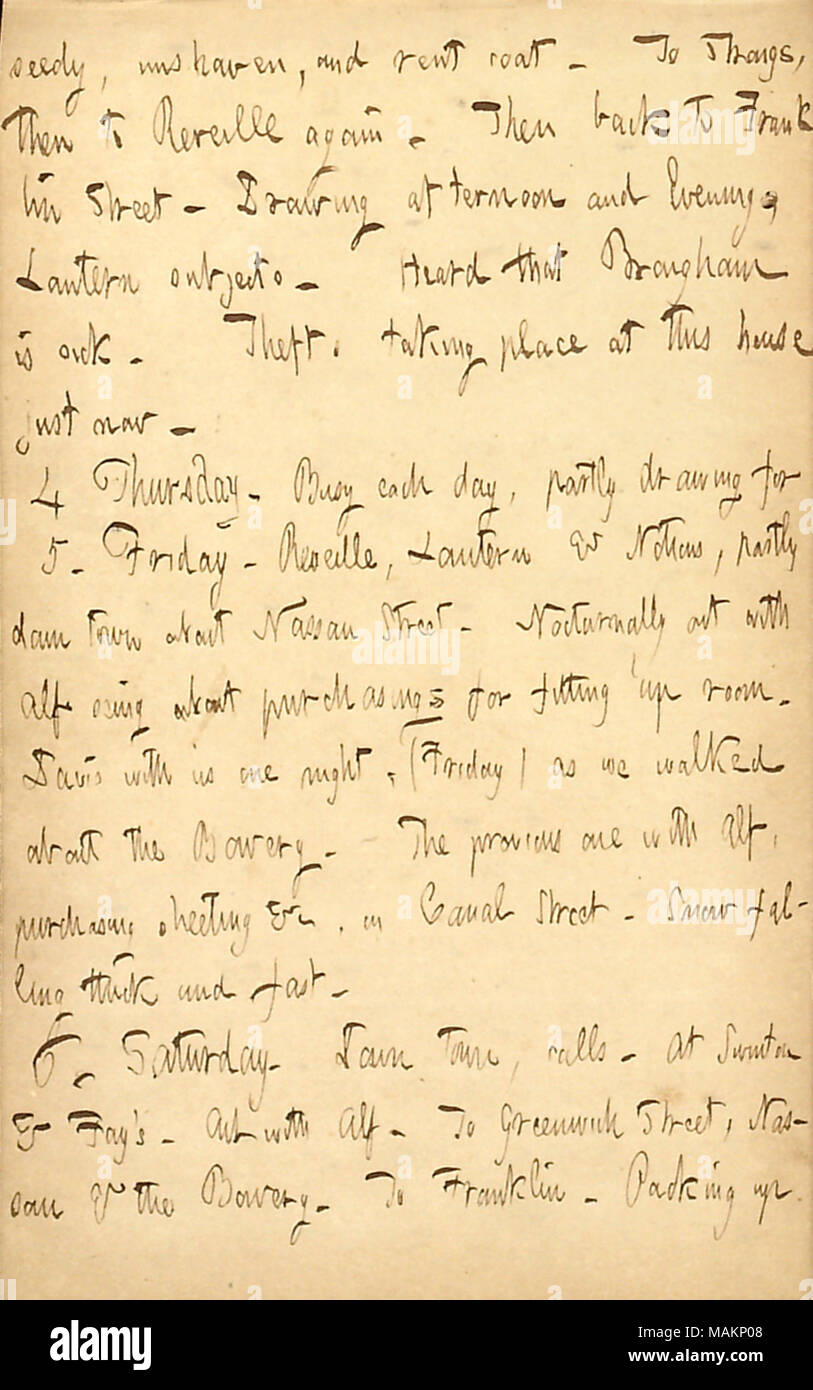 seedy, unshaven, and rent coat. To Strongs,
then to Reveille again. Then back to Frank
lin Street. Drawing afternoon and Evening,
Lantern subjects. Heard that Brougham
is sick. Thefts taking place at this house
just now.
4 Thursday. Busy each day, partly drawing for
5. Friday. Reveille, Lantern & Notions, partly
down town about Nassau Street. Nocturnally out with
Alf seeing about purchasings for fitting up room.
Davis with us one night, (Friday) as we walked
about the Bowery. The previous one with Alf,
purchasing sheeting &c. in Canal Street. Snow fal-
ling thick and fast.
6. Saturday. Down town, calls. At Swinton
& Fay's. Out with Alf. To Greenwich Street, Nas-
sau & the Bowery. To Franklin. Packing up.
alamy
Image ID: MAKP08
www.alamy.com